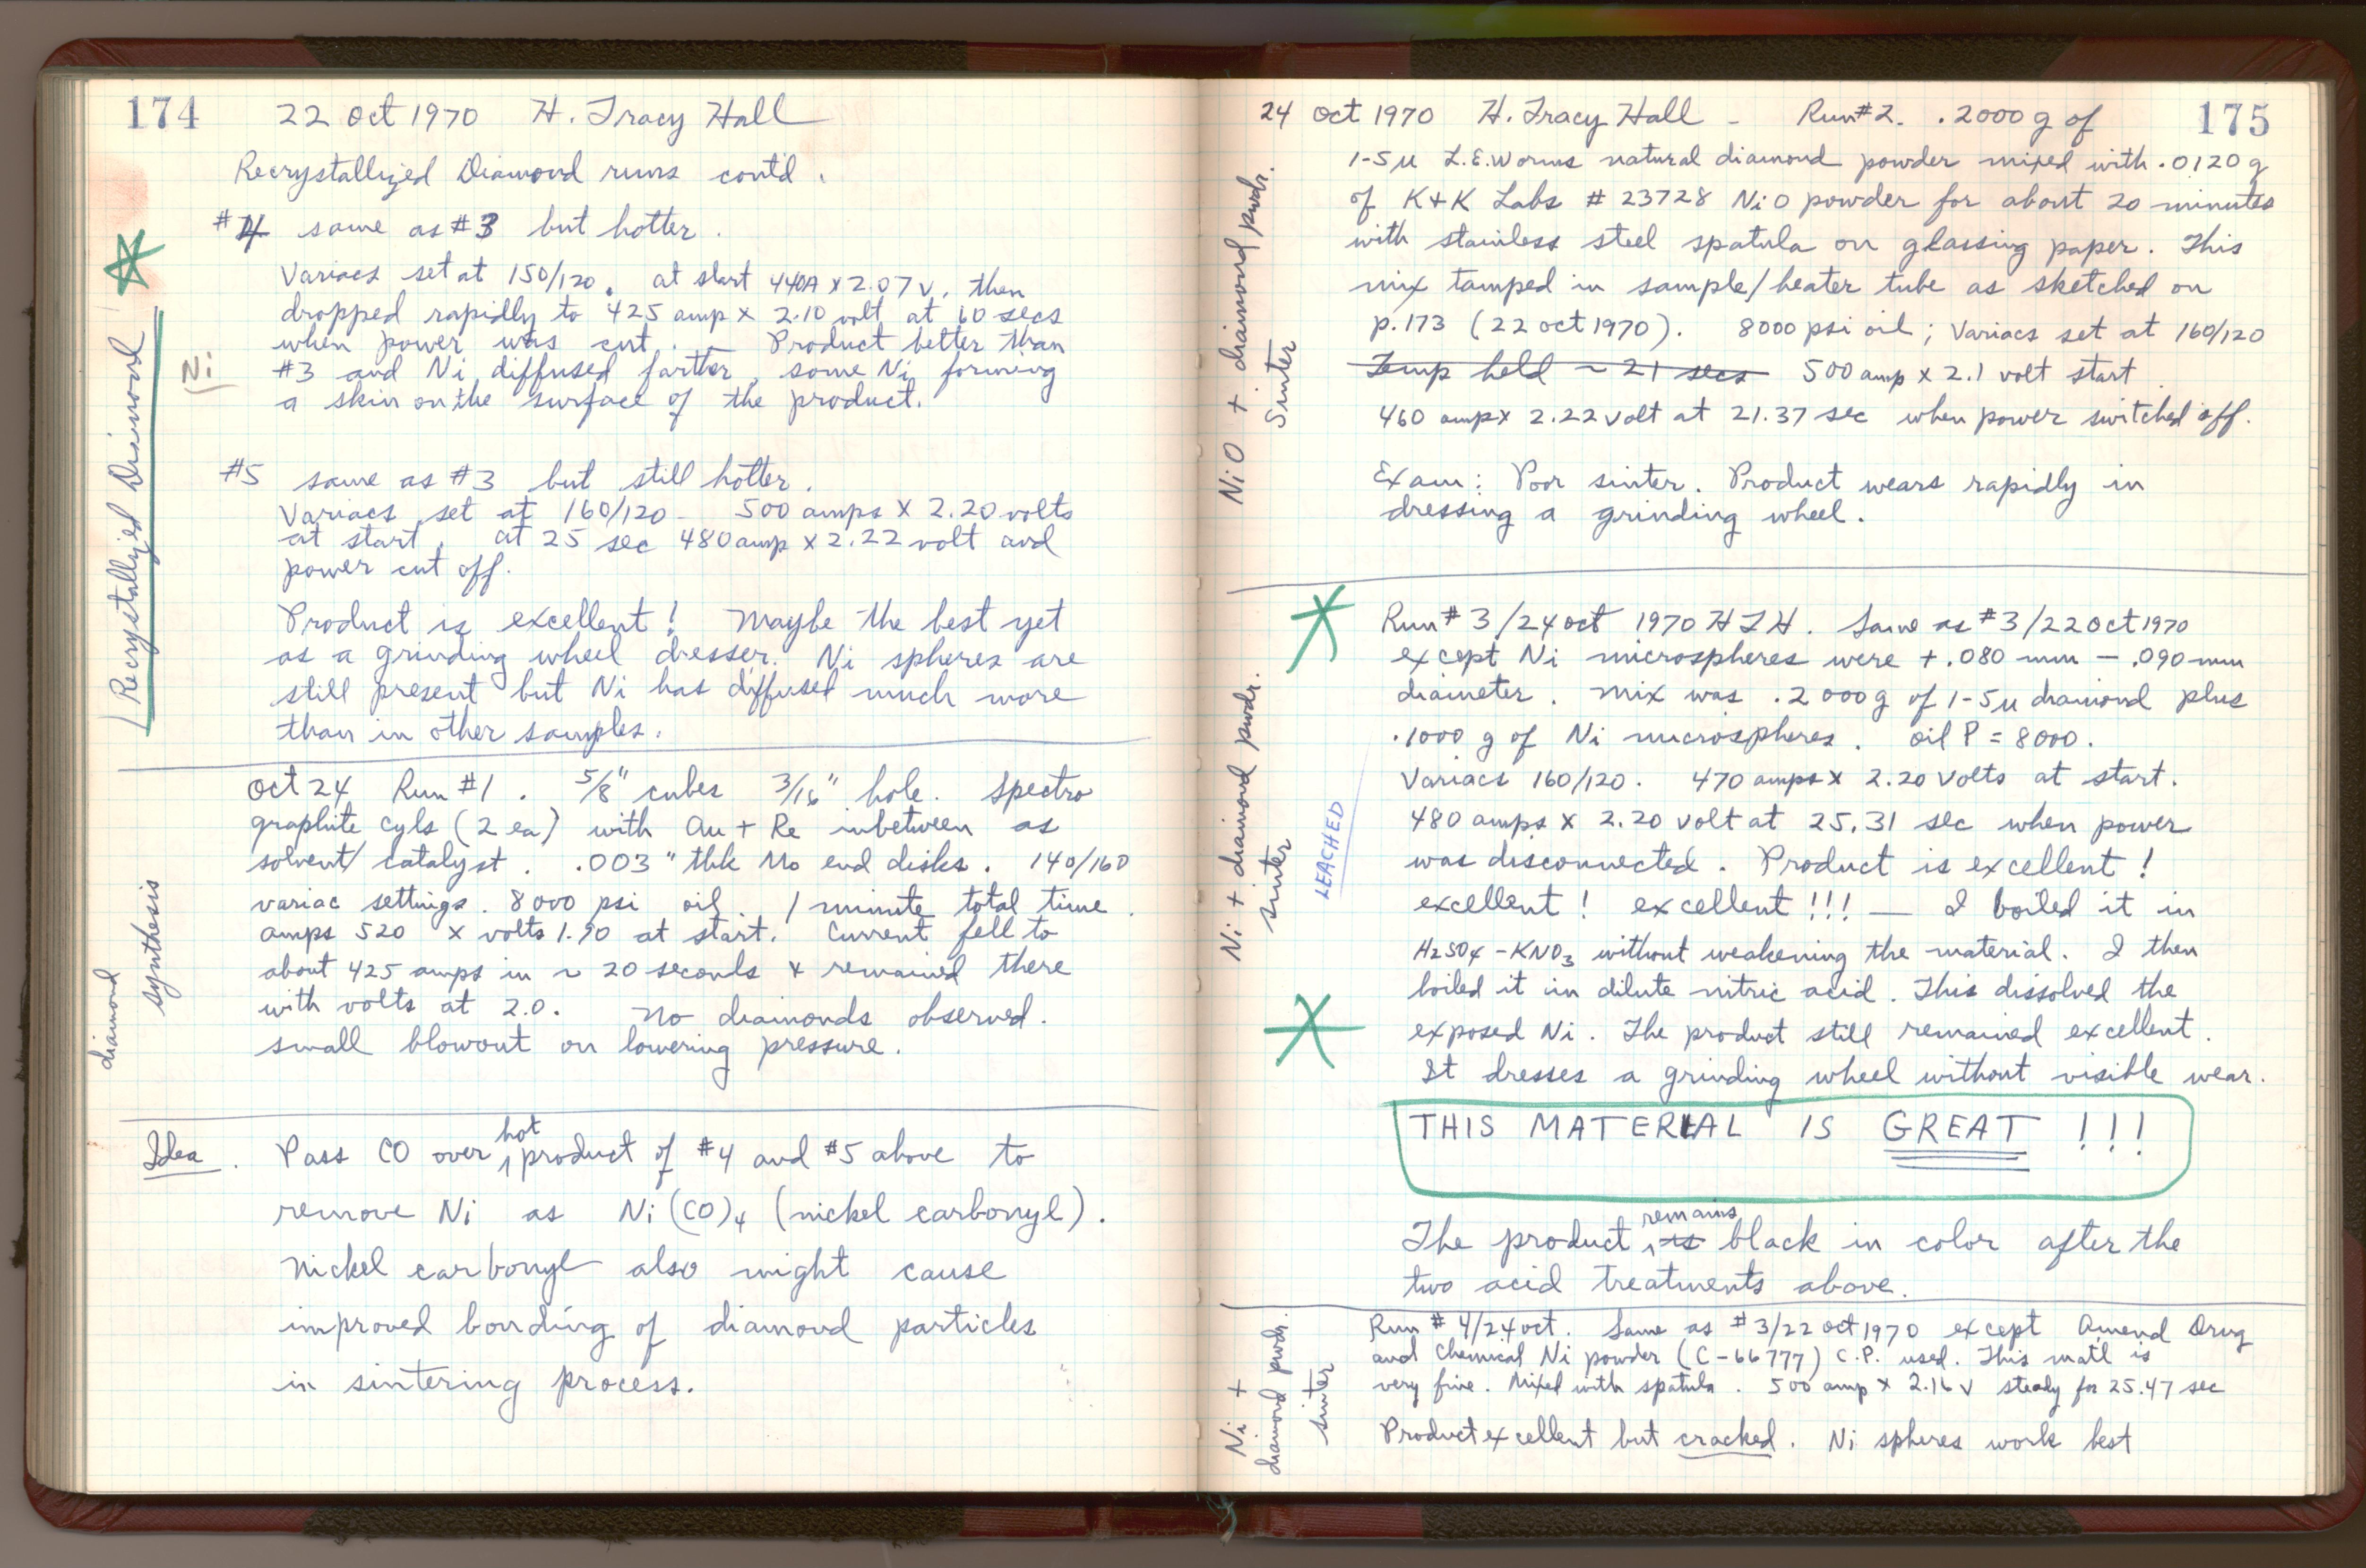 174 22 Oct 1970 H. Tracy Hall
Recrystallized Diamond runs cont'd.
#4 same as #3 but hotter.
Variacs set at 150/120. at start 440A x 2.07 V. then
dropped rapidly to 425 amp x 2.10 volt at 60 secs
when power was cut. - Product better than
#3 and Ni diffused farther, some Ni forming
a skin on the surface of the product.
Recrystallized Diamond
Ni
#5 same as #3 but still hotter.
Variacs set at 160/120 - 500 amps X 2.20 volts
at start. at 25 sec 480 amp x 2.22 volt and
power cut off.
Product is excellent! Maybe the best yet
as a grinding wheel dresser. Ni spheres are
still present but Ni has diffused much more
than in other samples.
Oct 24 Run #1. 5/8" cubes 3/16" hole. Spectro
graphite cyls (2 ea) with Au + Re inbetween as
solvent/catalyst. .003" thk Mo end disks. 140/160
variac settings. 8000 psi oil 1 minute total time.
amps 520 x volts 1.90 at start. Current fell to
about 425 amps in ~ 20 seconds & remained there
with volts at 2.0. No diamonds observed.
small blowout on lowering pressure.
diamond
synthesis
Idea. Pass CO over hot product of #4 and #5 above to
remove Ni as Ni(CO)4 (nickel carbonyl).
Nickel carbonyl also might cause
improved bonding of diamond particles
in sintering process.
24 Oct 1970 H. Tracy Hall - Run #2. .2000 g of 175
1-5µ L.E. Worms natural diamond powder mixed with .0120 g
of K+K Labs # 23728 NiO powder for about 20 minutes
with stainless steel spatula on glassing paper. This
mix tamped in sample/heater tube as sketched on
p.173 (22 Oct 1970). 8000 psi oil; Variacs set at 160/120
Temp held ~ 21 secs 500 amp x 2.1 volt start
460 amp x 2.22 volt at 21.37 sec when power switched off.
NiO + diamond pwdr.
Sinter
Exam: Poor sinter. Product wears rapidly in
dressing a grinding wheel.
Run #3/24 Oct 1970 HTH. Same as #3/22 Oct 1970
except Ni microspheres were +.080 mm - .090 mm
diameter. Mix was .2000 g of 1-5µ diamond plus
.1000 g of Ni microspheres. oil P = 8000.
Variacs 160/120. 470 amps x 2.20 Volts at start.
480 amps x 2.20 volt at 25.31 sec when power
was disconnected. Product is excellent!
excellent! excellent!!! — I boiled it in
H2SO4 - KNO3 without weakening the material. I then
boiled it in dilute nitric acid. This dissolved the
exposed Ni. The product still remained excellent.
It dresses a grinding wheel without visible wear.
Ni + diamond pwdr.
sinter
LEACHED
THIS MATERIAL IS GREAT !!!
The product is remains black in color after the
two acid treatments above.
Run #4/24 Oct. Same as #3/22 Oct 1970 except Amend Drug
and Chemical Ni powder (C-66777) C.P. used. This mat'l is
very fine. Mixed with spatula. 500 amp x 2.16 V steady for 25.47 sec
Product excellent but cracked. Ni spheres work best
Ni +
diamond pwdr.
sinter